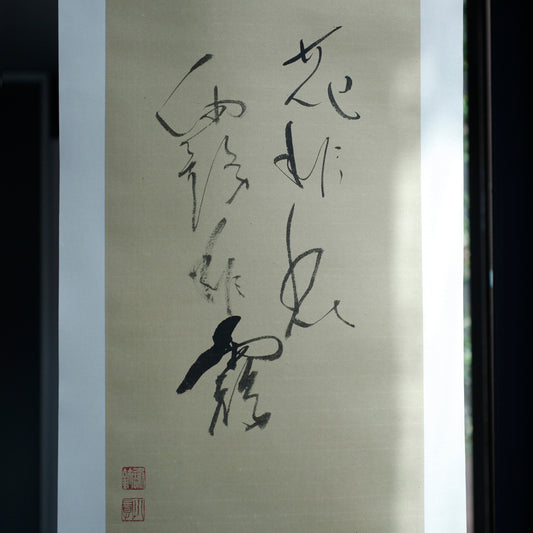 花非花
霧非霧